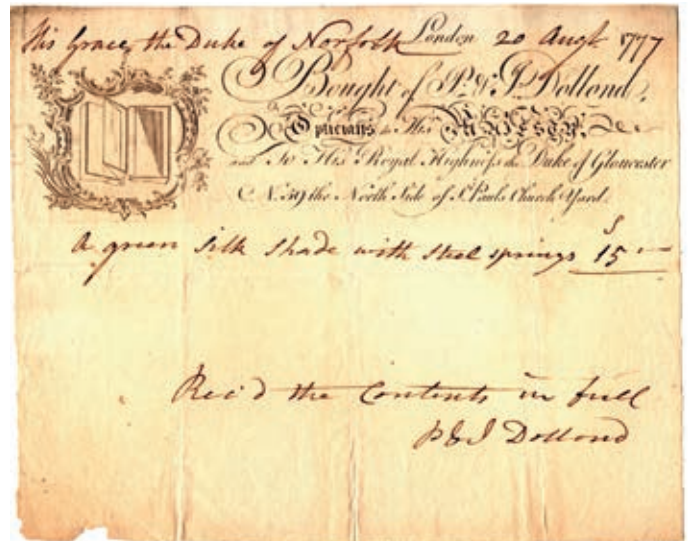 His Grace, the Duke of Norfolk London 20 Augt. 1777
Bought of P. & J. Dollond,
Opticians to His MAJESTY,
and To His Royal Highness the Duke of Gloucester
N. 59 the North Side of St. Pauls Church Yard.
S
A green silk shade with steel springs 15 —
Rec'd the Contents in full
P & J Dollond